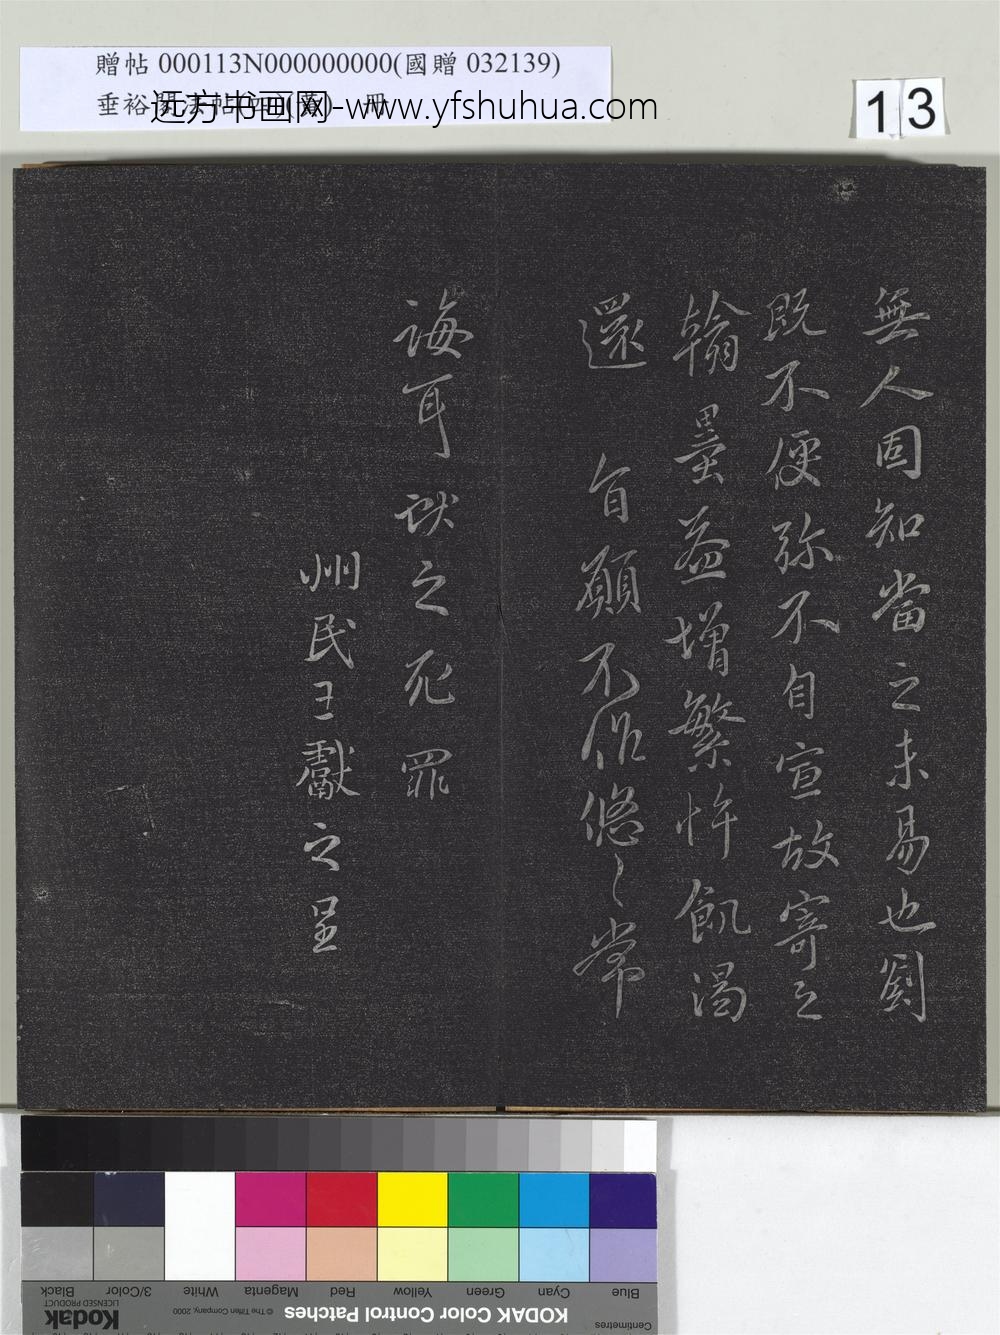 贈帖 000113N000000000(國贈 032139)
远方书画网-www.yfshuhua.com
13
無人固知當之未易也劉
既不便弥不自宣故寄之
翰墨益增繁忤飢渴
還旨願不作悠〻常
誨耳獻之死罪
州民王獻之呈
Blue Cyan Green Yellow Red Magenta White 3/Color Black
Centimetres
KODAK Color Control Patches
© The Tiffen Company, 2000
Kodak
LICENSED PRODUCT